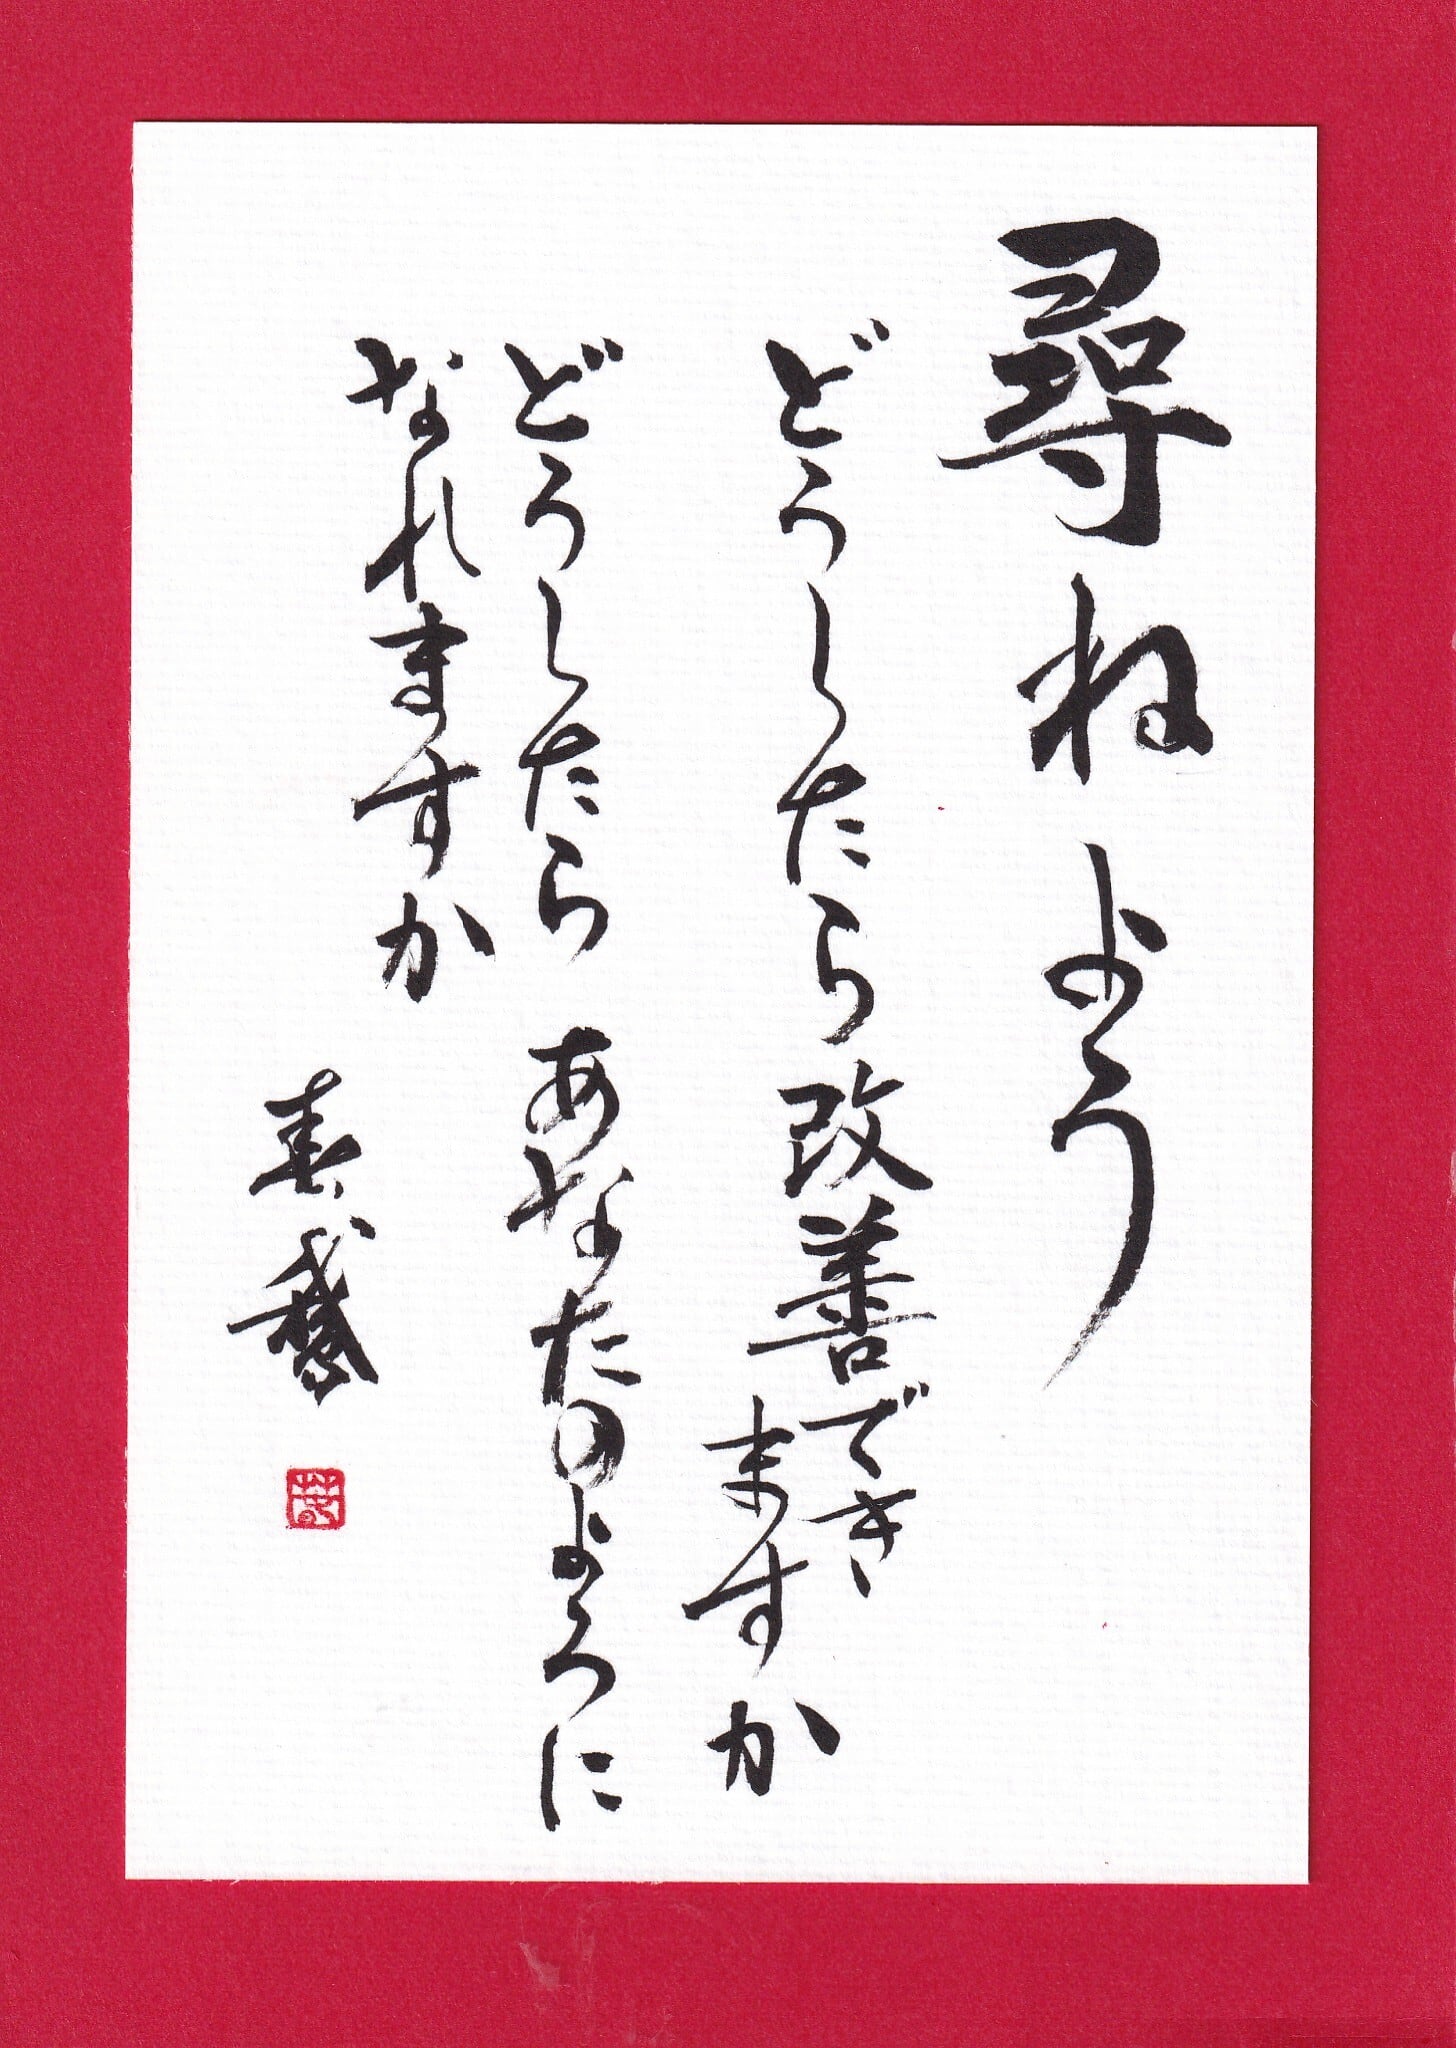 尋ねよう
どうしたら改善でき
ますか
どうしたら あなたのように
なれますか
春鵞